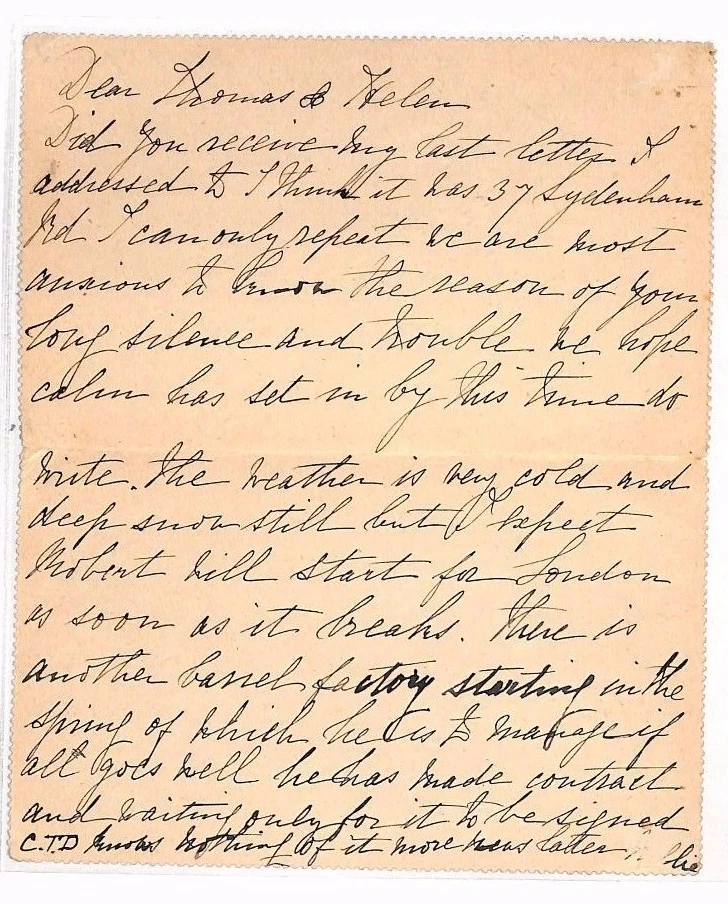 Dear Thomas & Helen
Did you receive my last letter I
addressed to I think it was 37 Sydenham
Rd I can only repeat we are most
anxious to know the reason of your
long silence and trouble we hope
calm has set in by this time do
write. The weather is very cold and
deep snow still but I expect
Robert will start for London
as soon as it breaks. There is
another barrel factory starting in the
spring of which he is to manage if
all goes well he has made contract
and waiting only for it to be signed
C.T.D knows nothing of it more news later